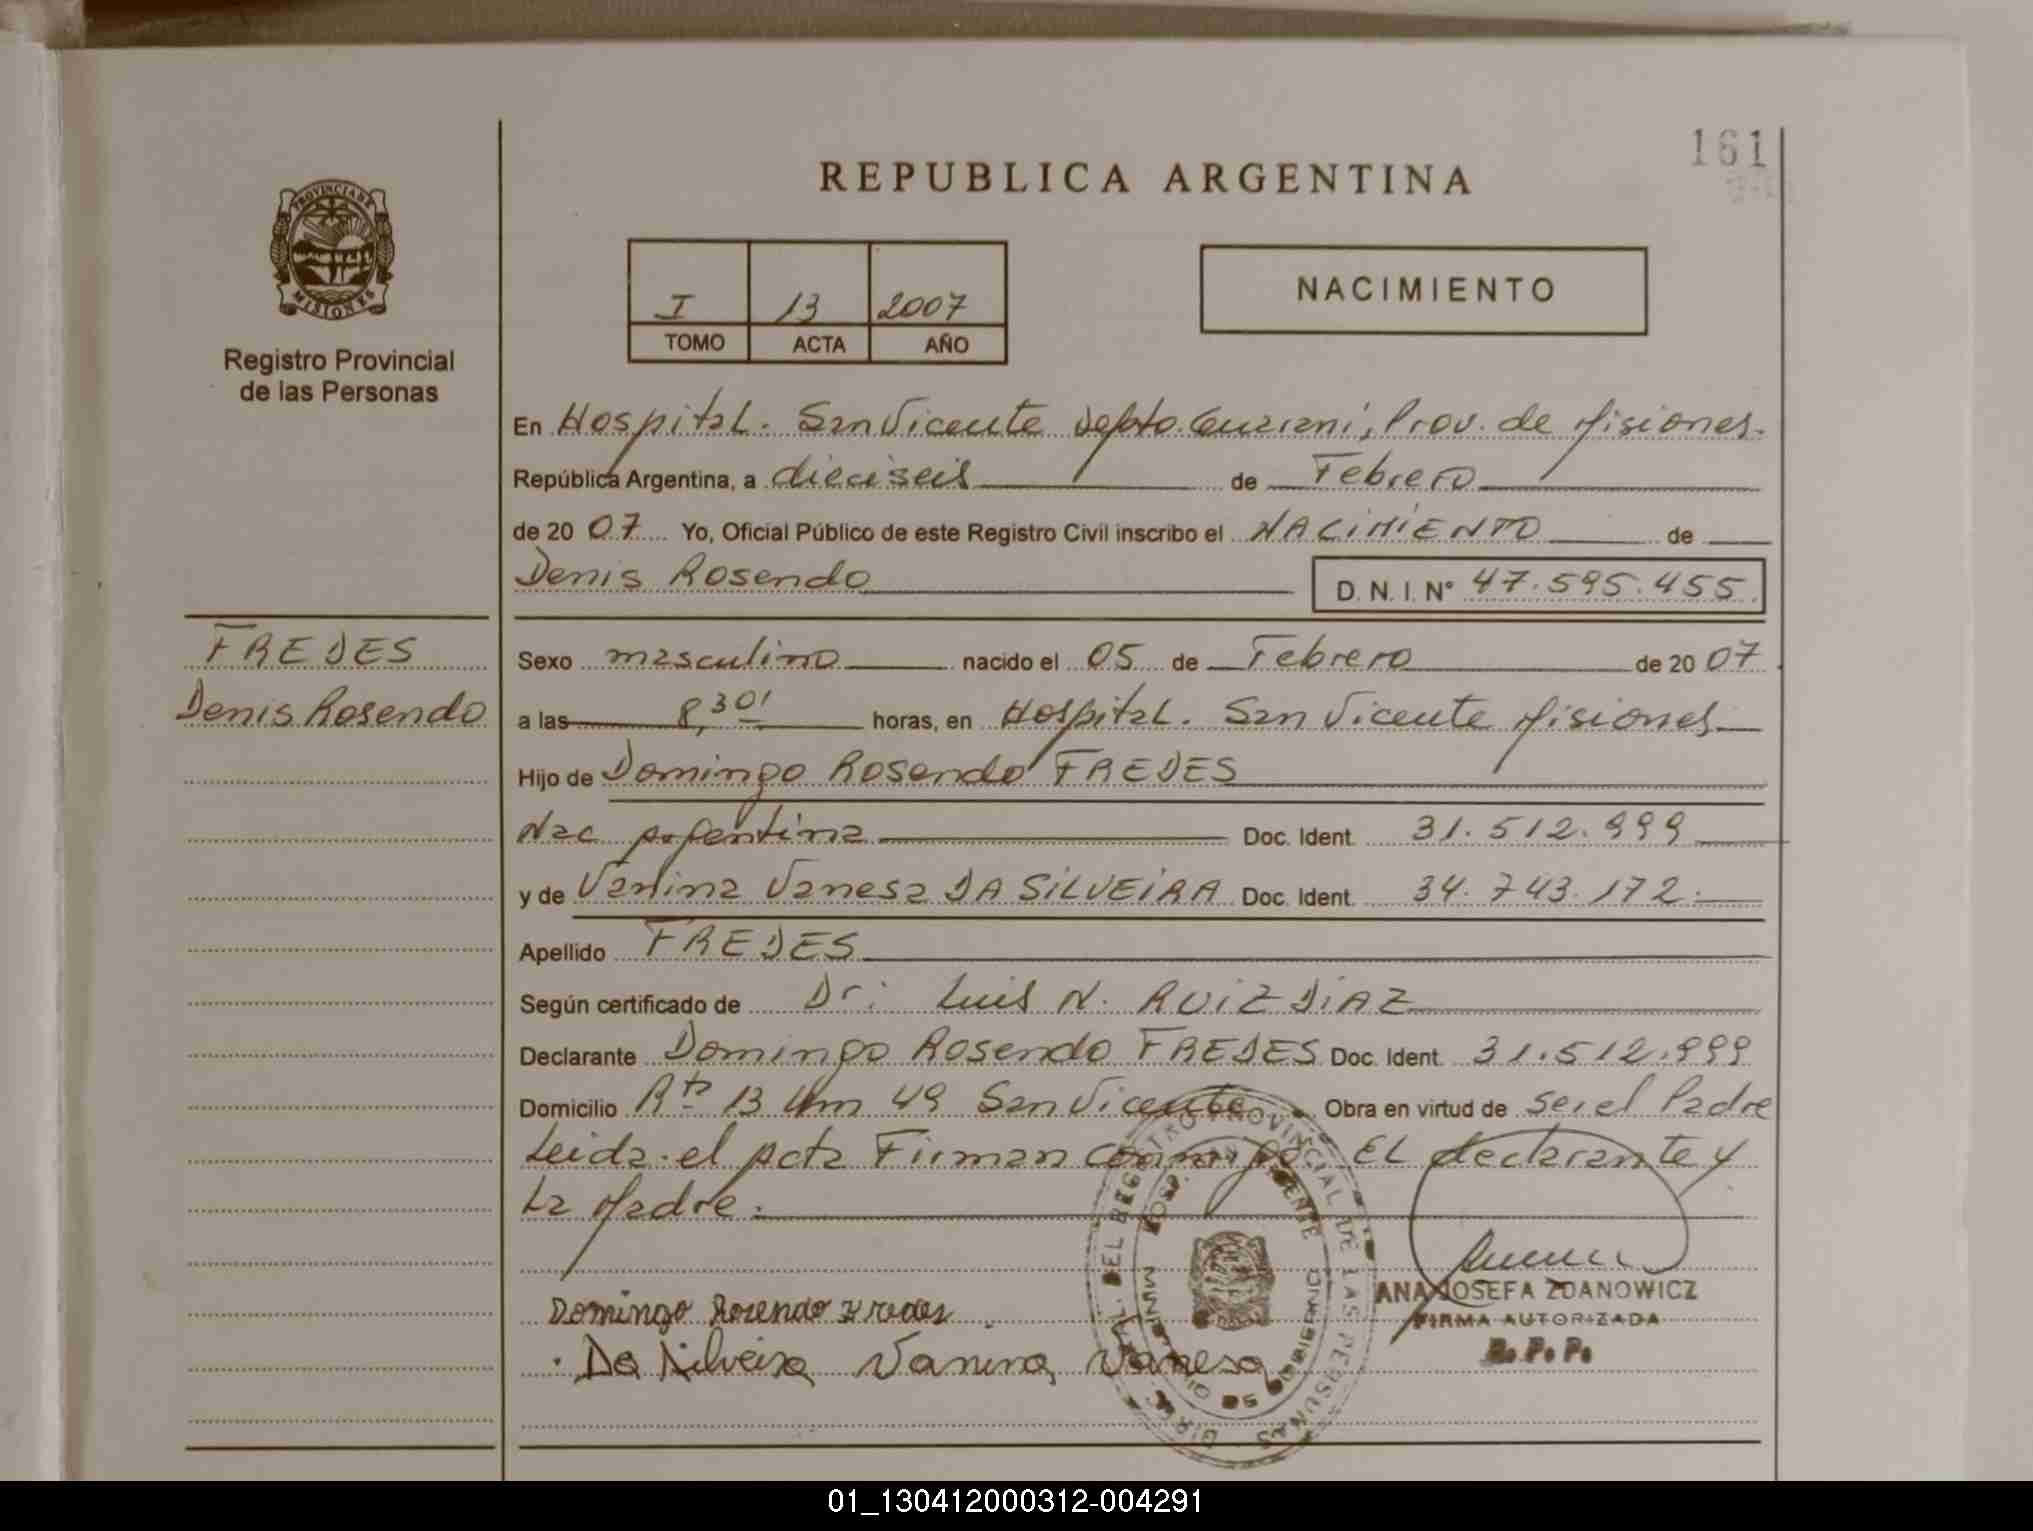 161
REPUBLICA ARGENTINA
PROVINCIA DE MISIONES
Registro Provincial
de las Personas
I 13 2007
TOMO ACTA AÑO
NACIMIENTO
En Hospital. San Vicente Depto. Guarani, Prov. de Misiones.
República Argentina, a dieciseis de Febrero
de 20 07 Yo, Oficial Público de este Registro Civil inscribo el NACIMIENTO de
Denis Rosendo D. N. I. N° 47.595.455
FREDES
Denis Rosendo
Sexo masculino nacido el 05 de Febrero de 20 07
a las 8,30' horas, en Hospital. San Vicente Misiones
Hijo de Domingo Rosendo FREDES
Nac Argentina Doc. Ident. 31.512.999
y de Vanina Vanesa DA SILVEIRA Doc. Ident. 34.743.172.
Apellido FREDES
Según certificado de Dr: Luis N. RUIZ DIAZ
Declarante Domingo Rosendo FREDES Doc. Ident. 31.512.999
Domicilio Rta 13 Km 49 San Vicente Obra en virtud de ser el Padre
Leida el acta Firman conmigo EL declarante y
La Madre.
Domingo Rosendo Fredes
Da Silveira Vanina Vanesa
ANA JOSEFA ZDANOWICZ
FIRMA AUTORIZADA
R. P. P.
DEL REGISTRO PROVINCIAL DE LAS PERSONAS
01_130412000312-004291